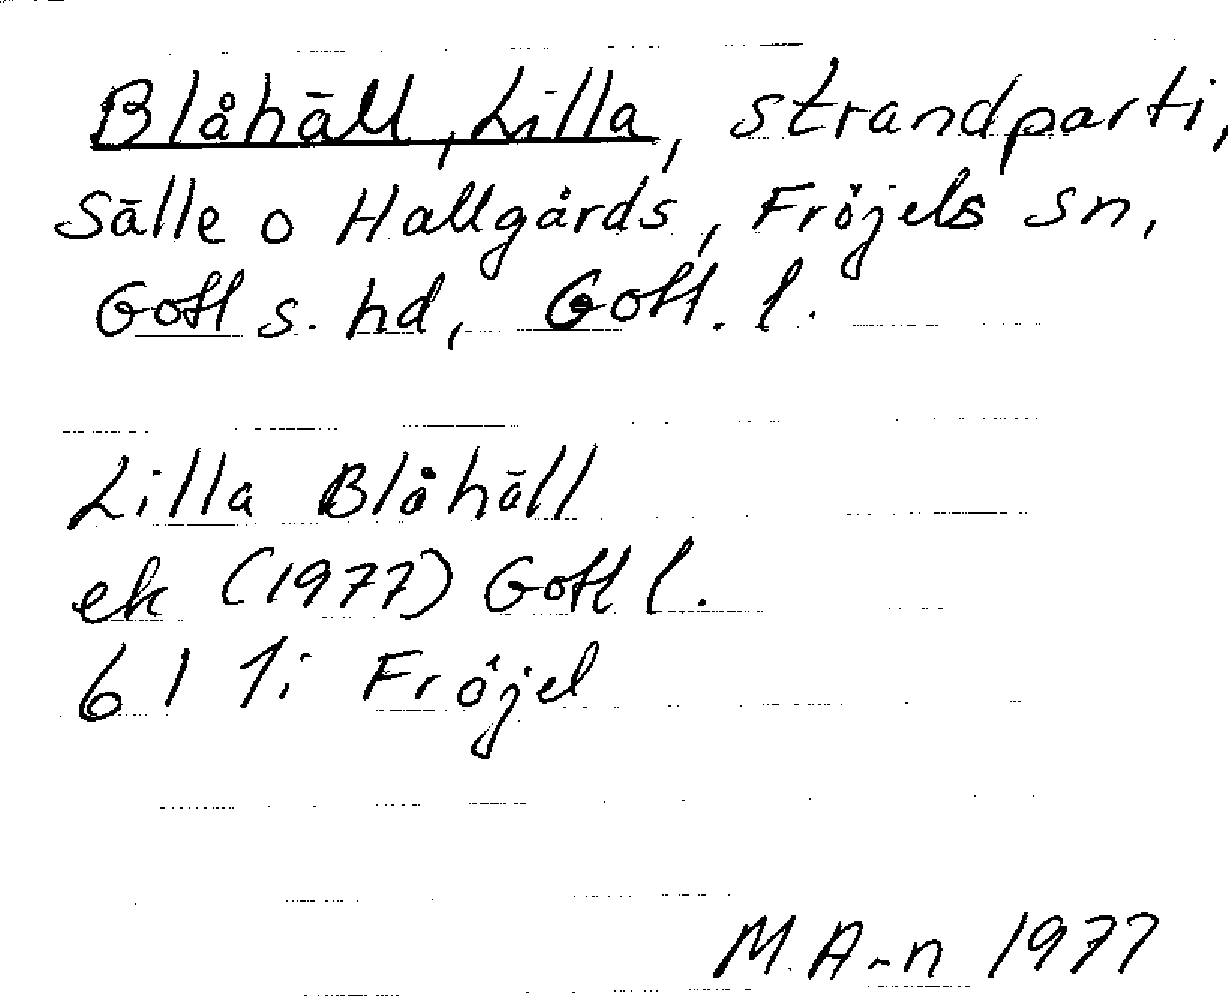 Blåhäll, Lilla, strandparti,
Sälle o Hallgårds, Fröjels sn,
Gotl s. hd, Gotl. l.
Lilla Blåhäll
ek (1977) Gotl l.
6 I 1i Fröjel
M.A-n 1977